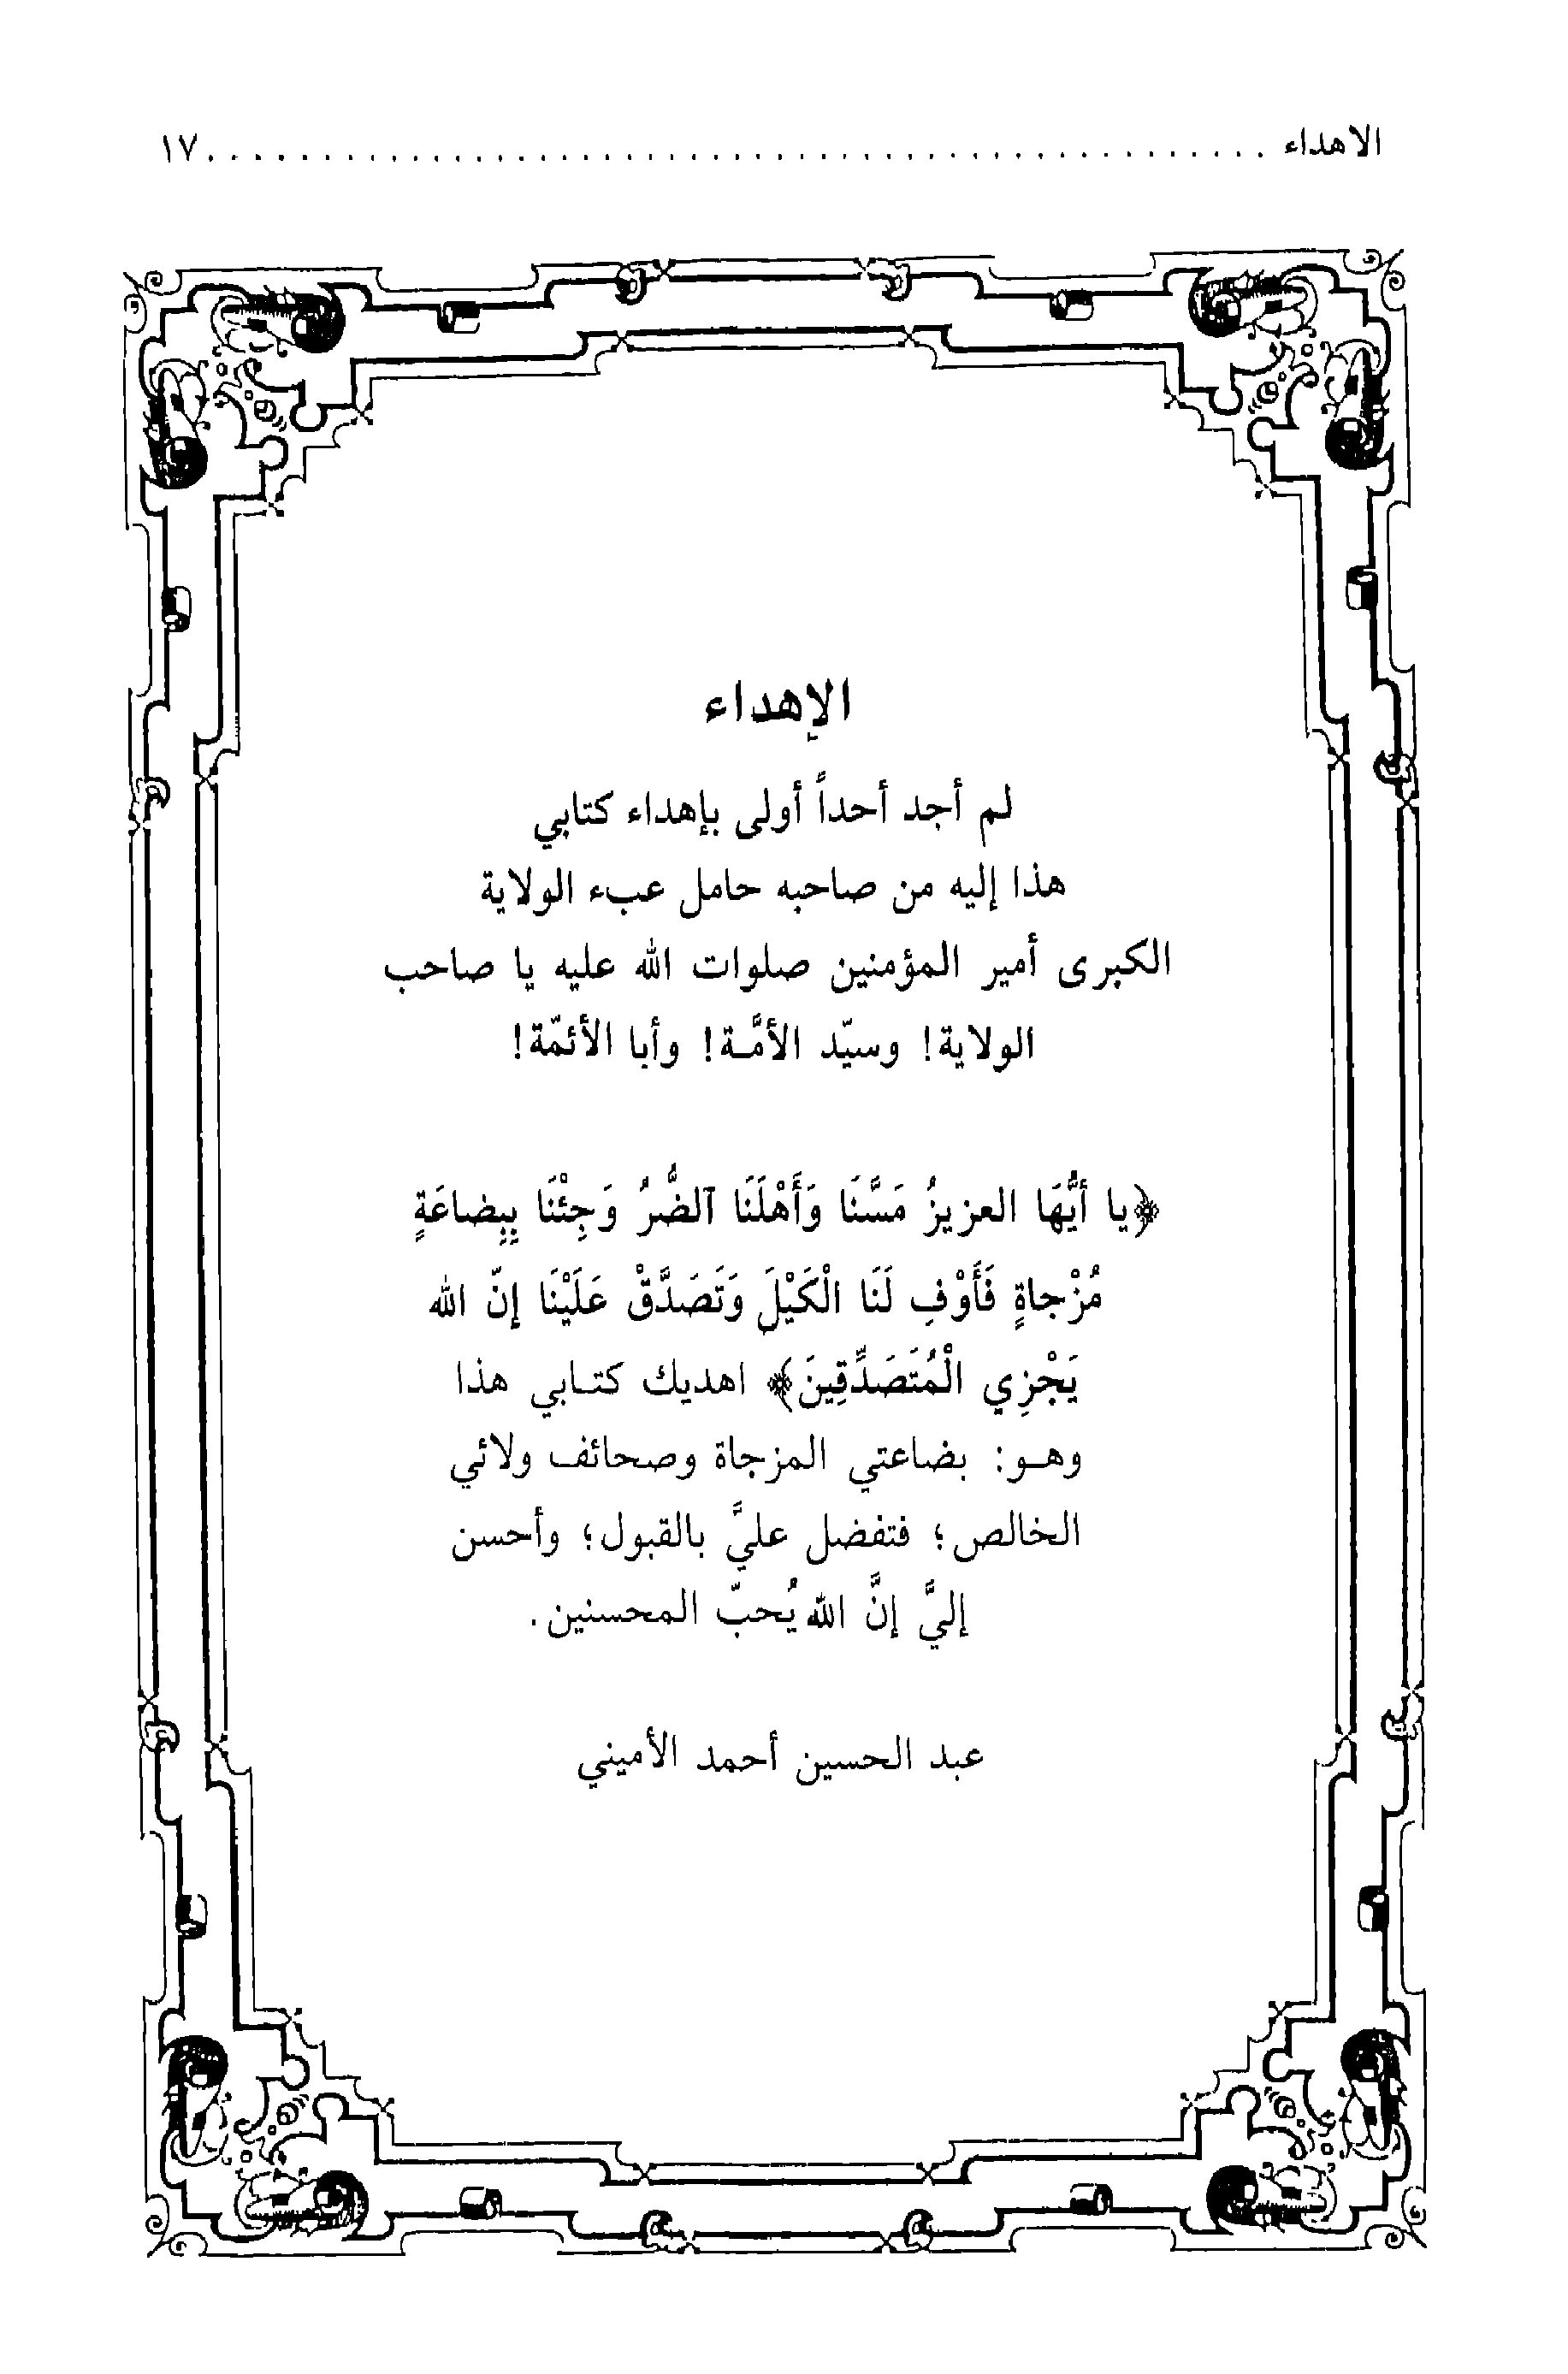 الاهداء ................................................ ١٧
الإهداء
لم أجد أحداً أولى بإهداء كتابي
هذا إليه من صاحبه حامل عبء الولاية
الكبرى أمير المؤمنين صلوات الله عليه يا صاحب
الولاية! وسيّد الأمَّـة! وأبا الأئمّة!
﴿يا أيُّهَا العزيزُ مَسَّنَا وَأَهْلَنَا آلضُّرُ وَجِئْنَا بِبِضاعَةٍ
مُزْجاةٍ فَأَوْفِ لَنَا الْكَيْلَ وَتَصَدَّقْ عَلَيْنَا إنّ الله
يَجْزِي الْمُتَصَدِّقِينَ﴾ اهديك كتـابي هذا
وهـو: بضاعتي المزجاة وصحائف ولائي
الخالص؛ فتفضل عليَّ بالقبول؛ وأحسن
إليَّ إنَّ الله يُحبّ المحسنين.
عبد الحسين أحمد الأميني